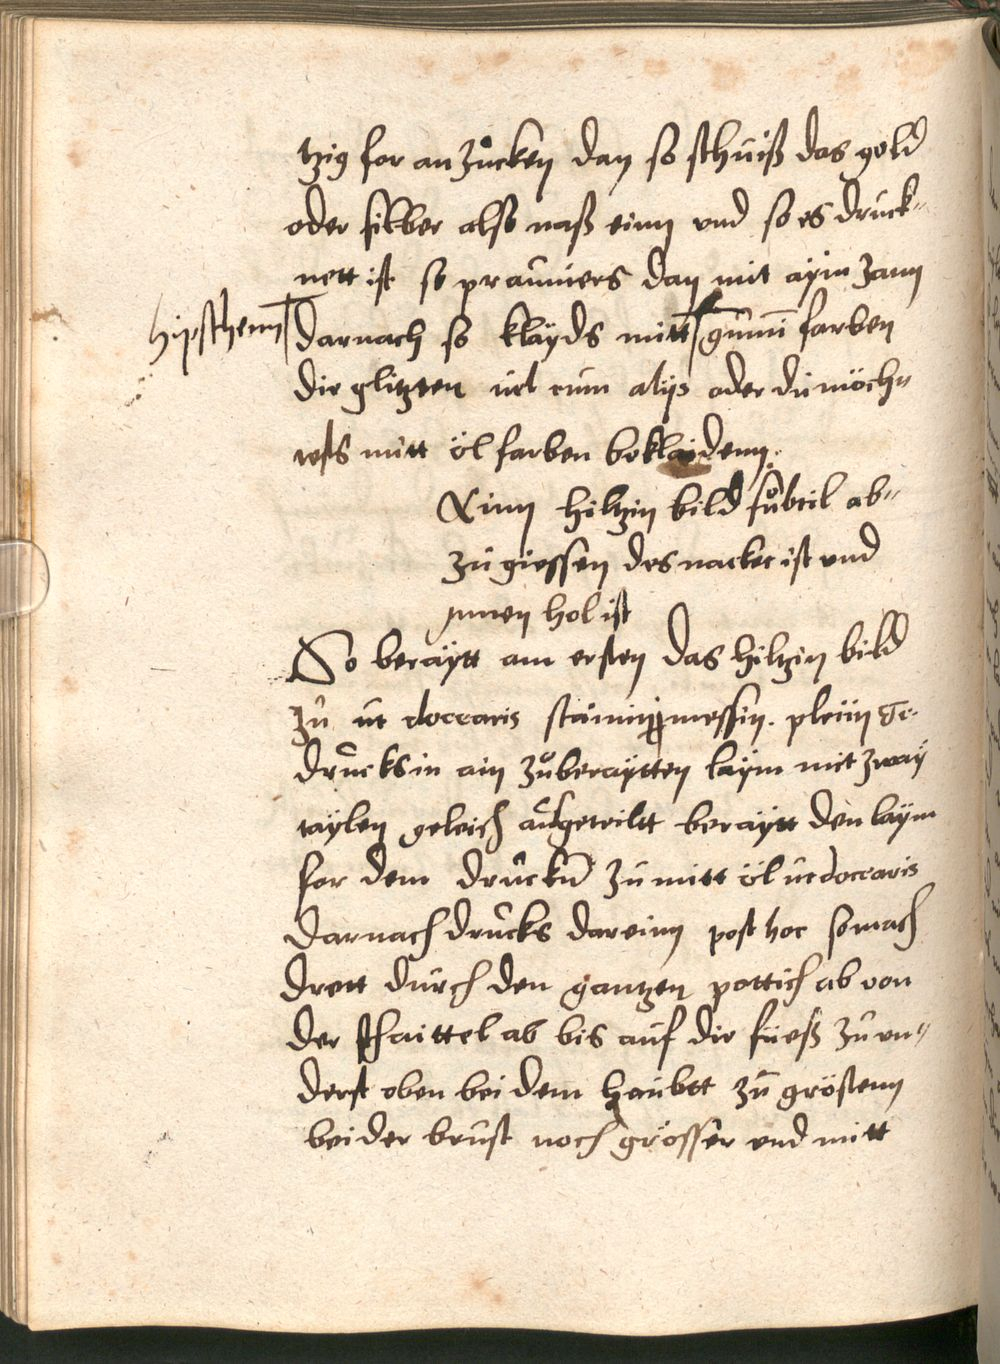 tzig for an zůcken dan so schuiß das gold
oder silber also naß einn und so es druck-
nett ist so prauniers dan mit ayin zann
hipschenn
darnach so klayds mitt gumi farben
die glitzten vel cum alijs oder du möch-
tests mitt öl farben beklaidenn.
Ainn hiltzin bild sůbtil ab-
zu giessen des nacket ist und
innen hol ist
So beraÿtt am ersten das hiltzin bild
zu ut doccaris stainin messin. pleiin etc.
drucks in ain zůberaÿtten laÿm mit zwaÿ
taÿlen geleich aufgeteiltt beraÿtt den laÿm
for dem druckn zu mitt öl ut doccaris
Darnach drucks dareinn post hoc so mach
drett durch den gantzen pottich ab von
der schaittel ab bis auf die füeß zu un-
derst oben bei dem haubtt zu gröstenn
bei der brust noch grösser und mitt